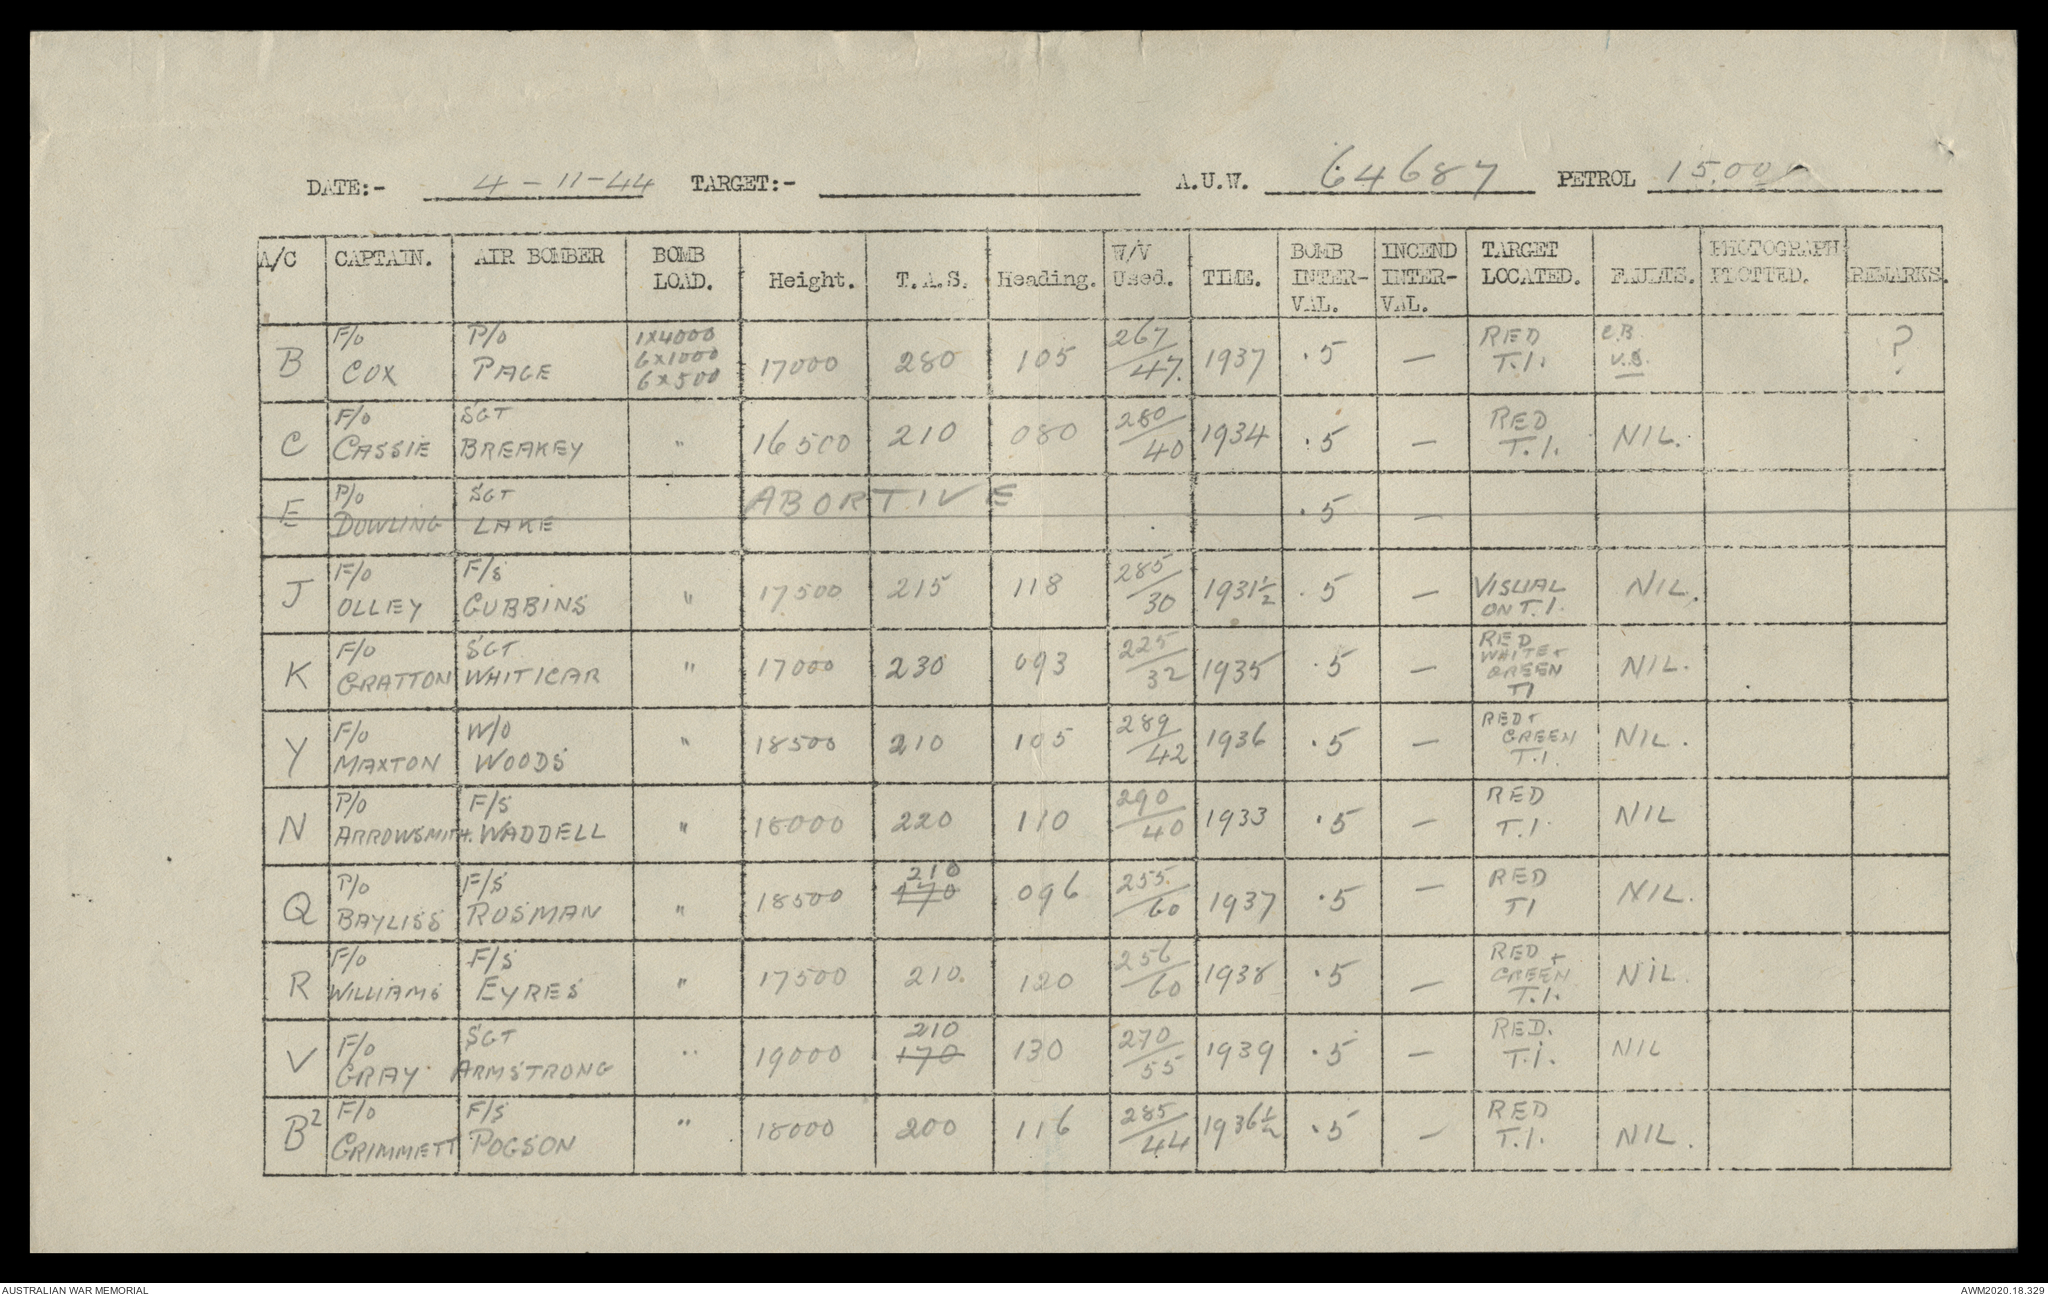 DATE:- 4-11-44 TARGET:- A.U.W. 64687 PETROL 15,00
A/C CAPTAIN. AIR BOMBER BOMB LOAD. Height. T.A.S. Heading. W/V Used. TIME. BOMB INTER-VAL. INCEND INTER-VAL. TARGET LOCATED. FAULTS. PHOTOGRAPH PLOTTED. REMARKS.
B F/O COX P/O PAGE 1x4000 6x1000 6x500 17000 280 105 267/47. 1937 .5 — RED T.I. C.B. U.S. ?
C F/O CASSIE SGT BREAKEY " 16500 210 080 280/40 1934 .5 — RED T.I. NIL.
E P/O DOWLING SGT LAKE ABORTIVE .5 —
J F/O OLLEY F/S GUBBINS " 17500 215 118 285/30 1931½ .5 — VISUAL ON T.I. NIL.
K F/O GRATTON SGT WHITICAR " 17000 230 093 225/32 1935 .5 — RED WHITE + GREEN TI NIL.
Y F/O MAXTON W/O WOODS " 18500 210 105 289/42 1936 .5 — RED + GREEN T.I. NIL.
N P/O ARROWSMITH. F/S WADDELL " 18000 220 110 290/40 1933 .5 — RED T.I NIL
Q P/O BAYLISS F/S ROSMAN " 18500 210 170 096 255/60 1937 .5 — RED TI NIL.
R F/O WILLIAMS F/S EYRES " 17500 210. 120 256/60 1938 .5 — RED + GREEN T.I. NIL.
V F/O GRAY SGT ARMSTRONG " 19000 210 170 130 270/55 1939 .5 — RED. T.I. NIL
B² F/O GRIMMETT F/S POGSON " 18000 200 116 285/44 1936½ .5 — RED T.I. NIL.
AUSTRALIAN WAR MEMORIAL AWM2020.18.329